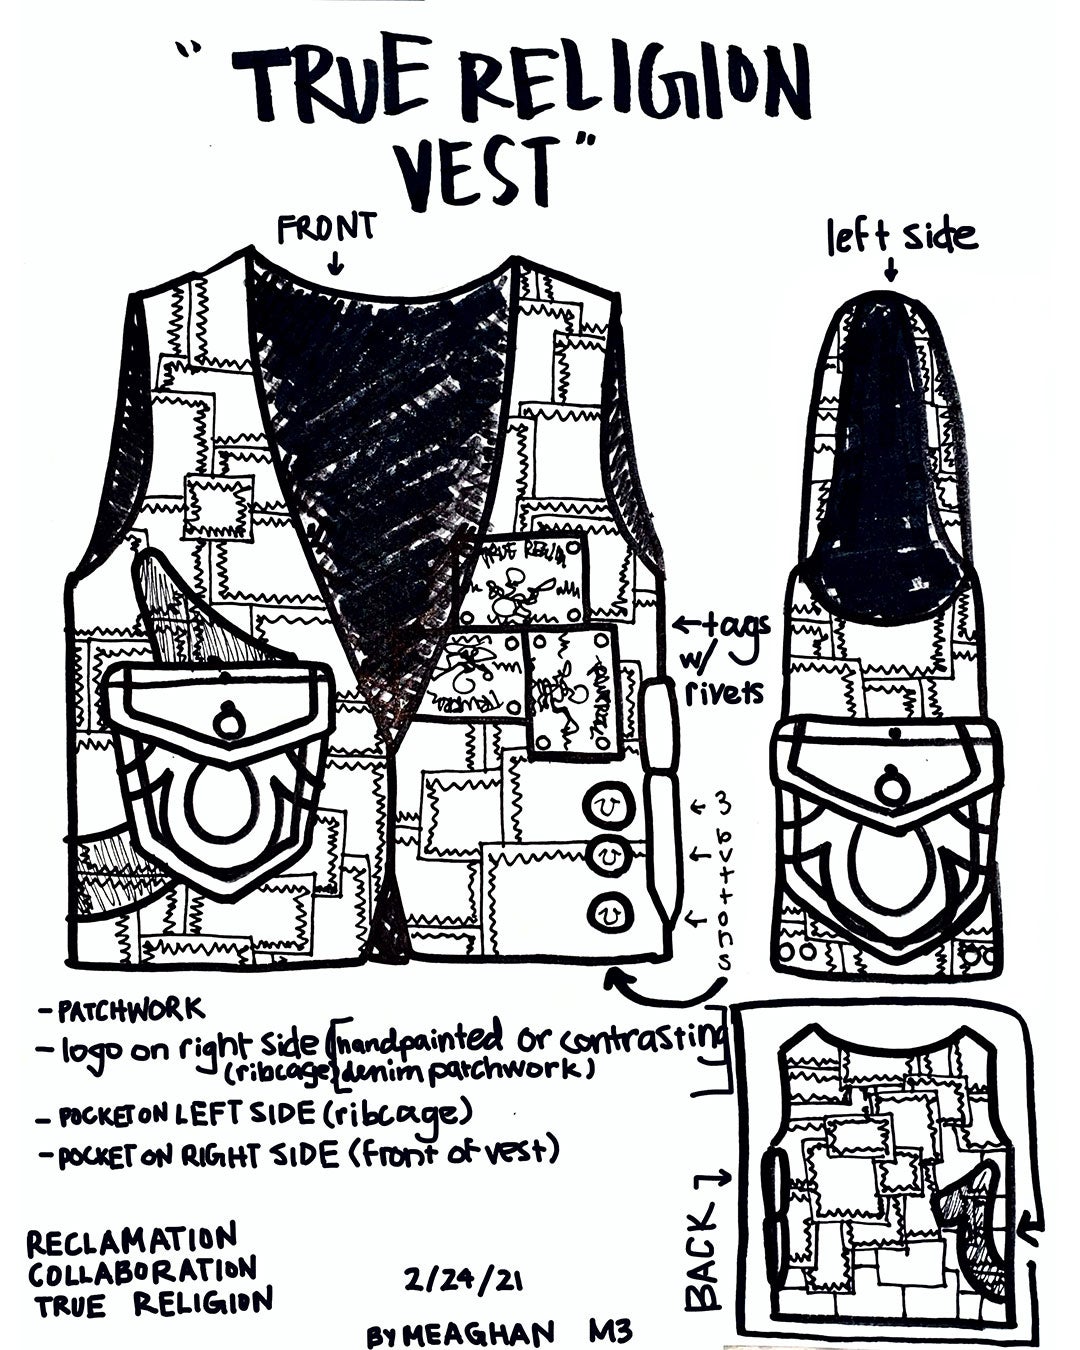 " TRUE RELIGION
VEST "
FRONT
left side
TRUE RELIG
← tags
w/
rivets
3 buttons
- PATCHWORK
- logo on right side [handpainted or contrasting
(ribcage) denim patchwork)
- POCKET ON LEFT SIDE (ribcage)
- POCKET ON RIGHT SIDE (front of vest)
BACK
RECLAMATION
COLLABORATION
TRUE RELIGION
2/24/21
BY MEAGHAN M3